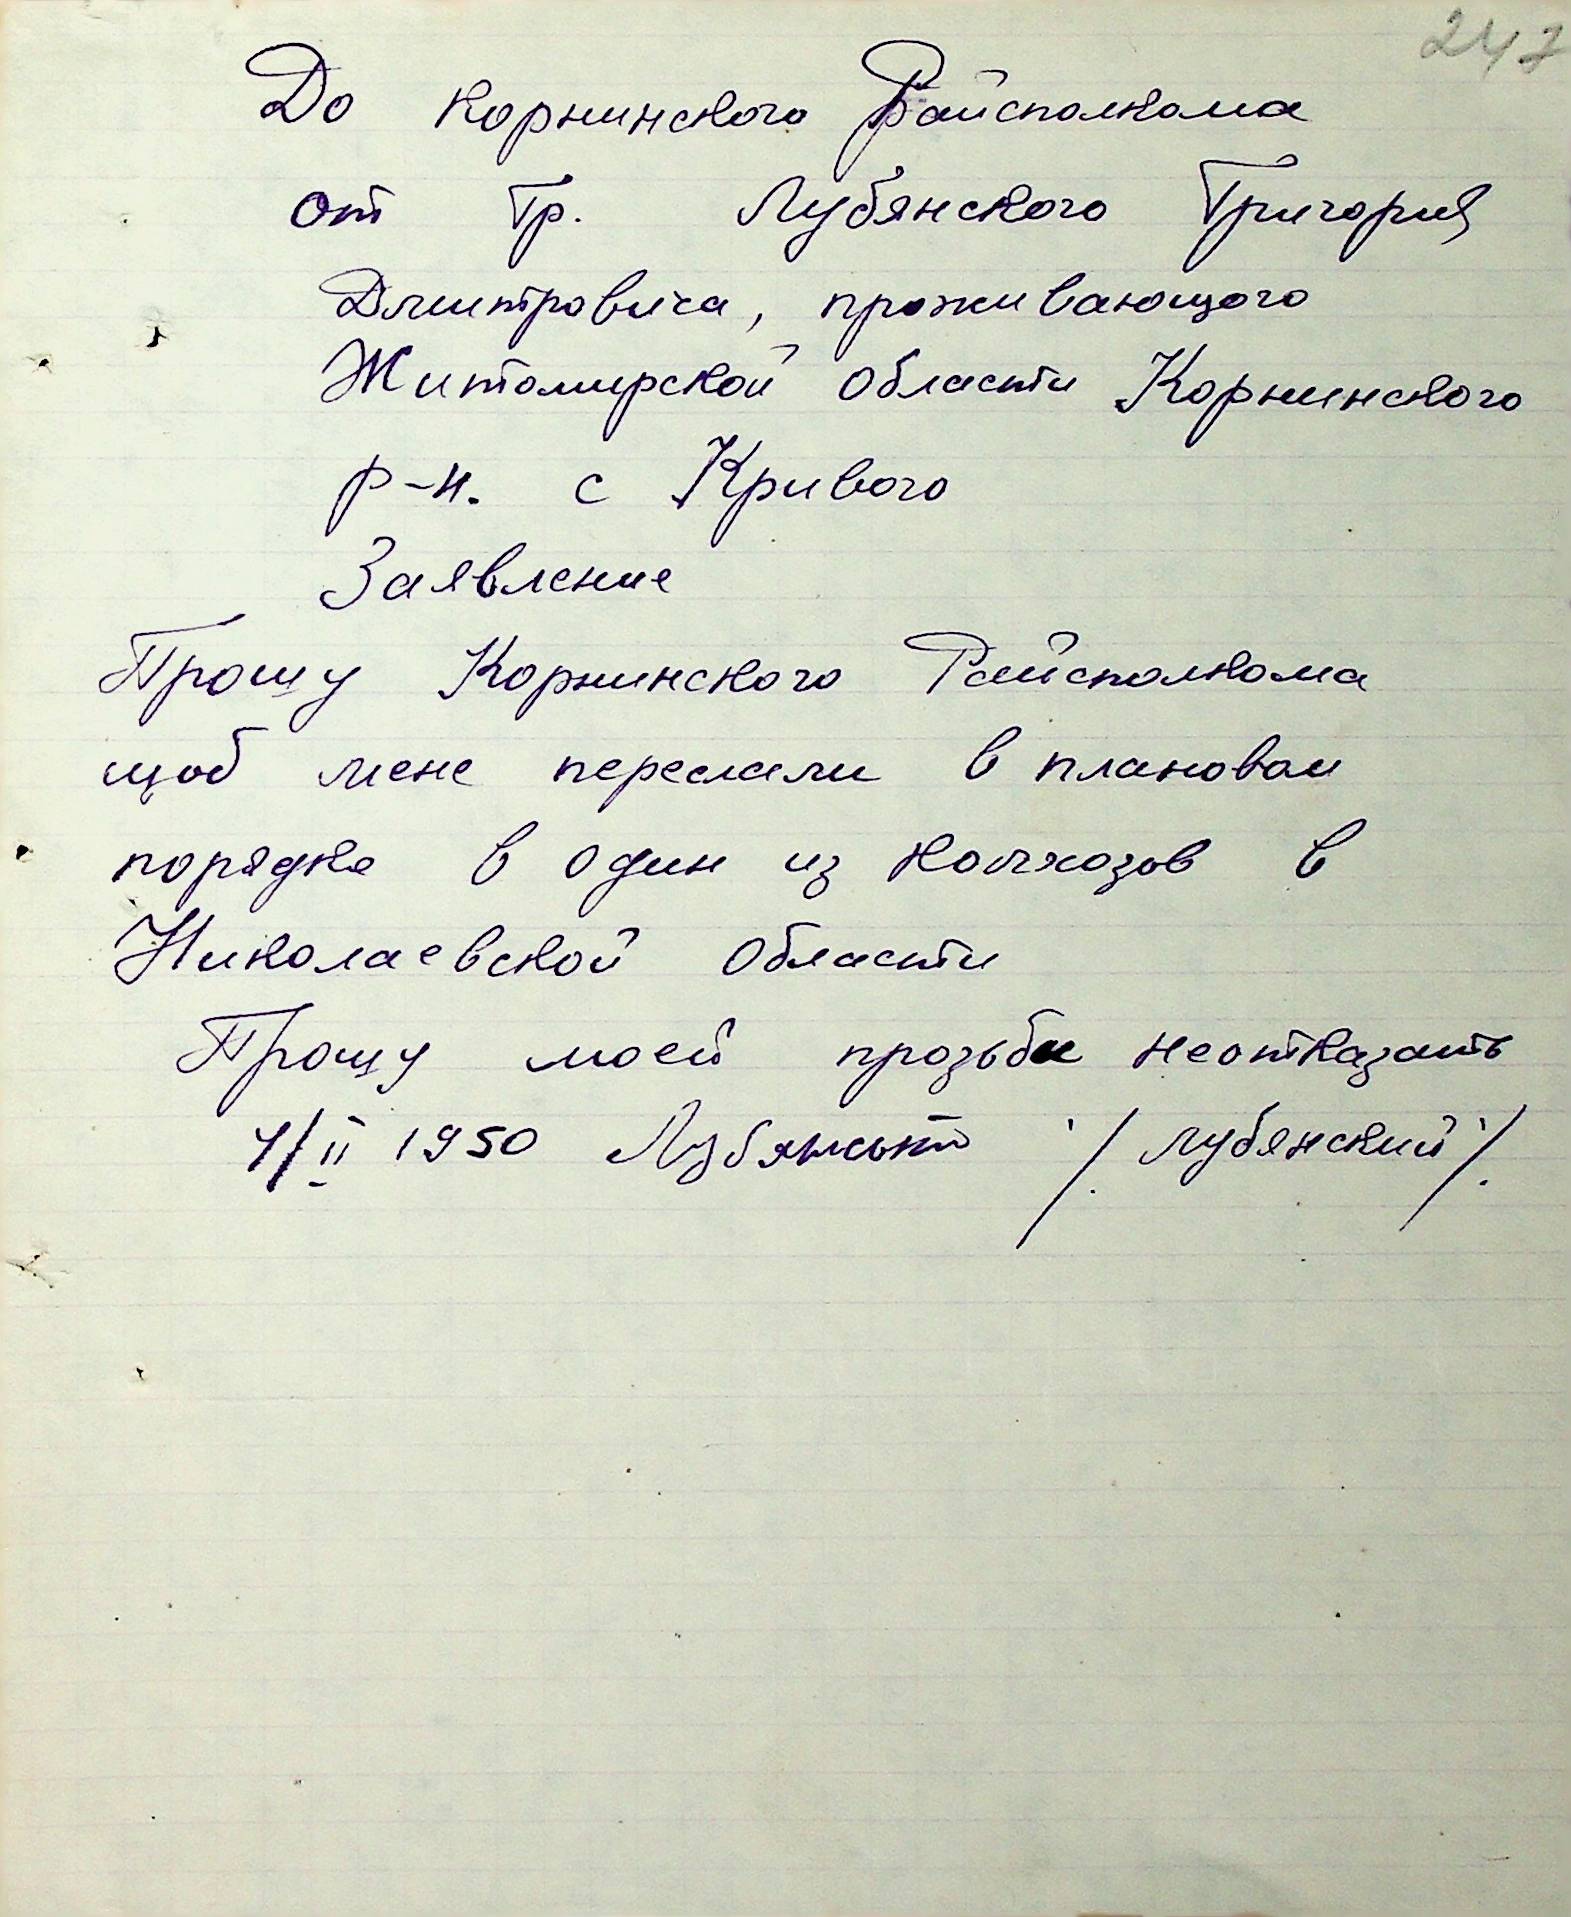 247
До корнинского Райсполкома
от Гр. Лубянского Григория
Дмитровича, проживающого
Житомирской области Корнинского
р-н. с Кривого
Заявление
Прошу Корнинского Райсполкома
щоб мене переслали в плановом
порядке в один из колхозов в
Николаевской области
Прошу моей прозьби неотказать
4/II 1950 Лубянський /. Лубянский /.